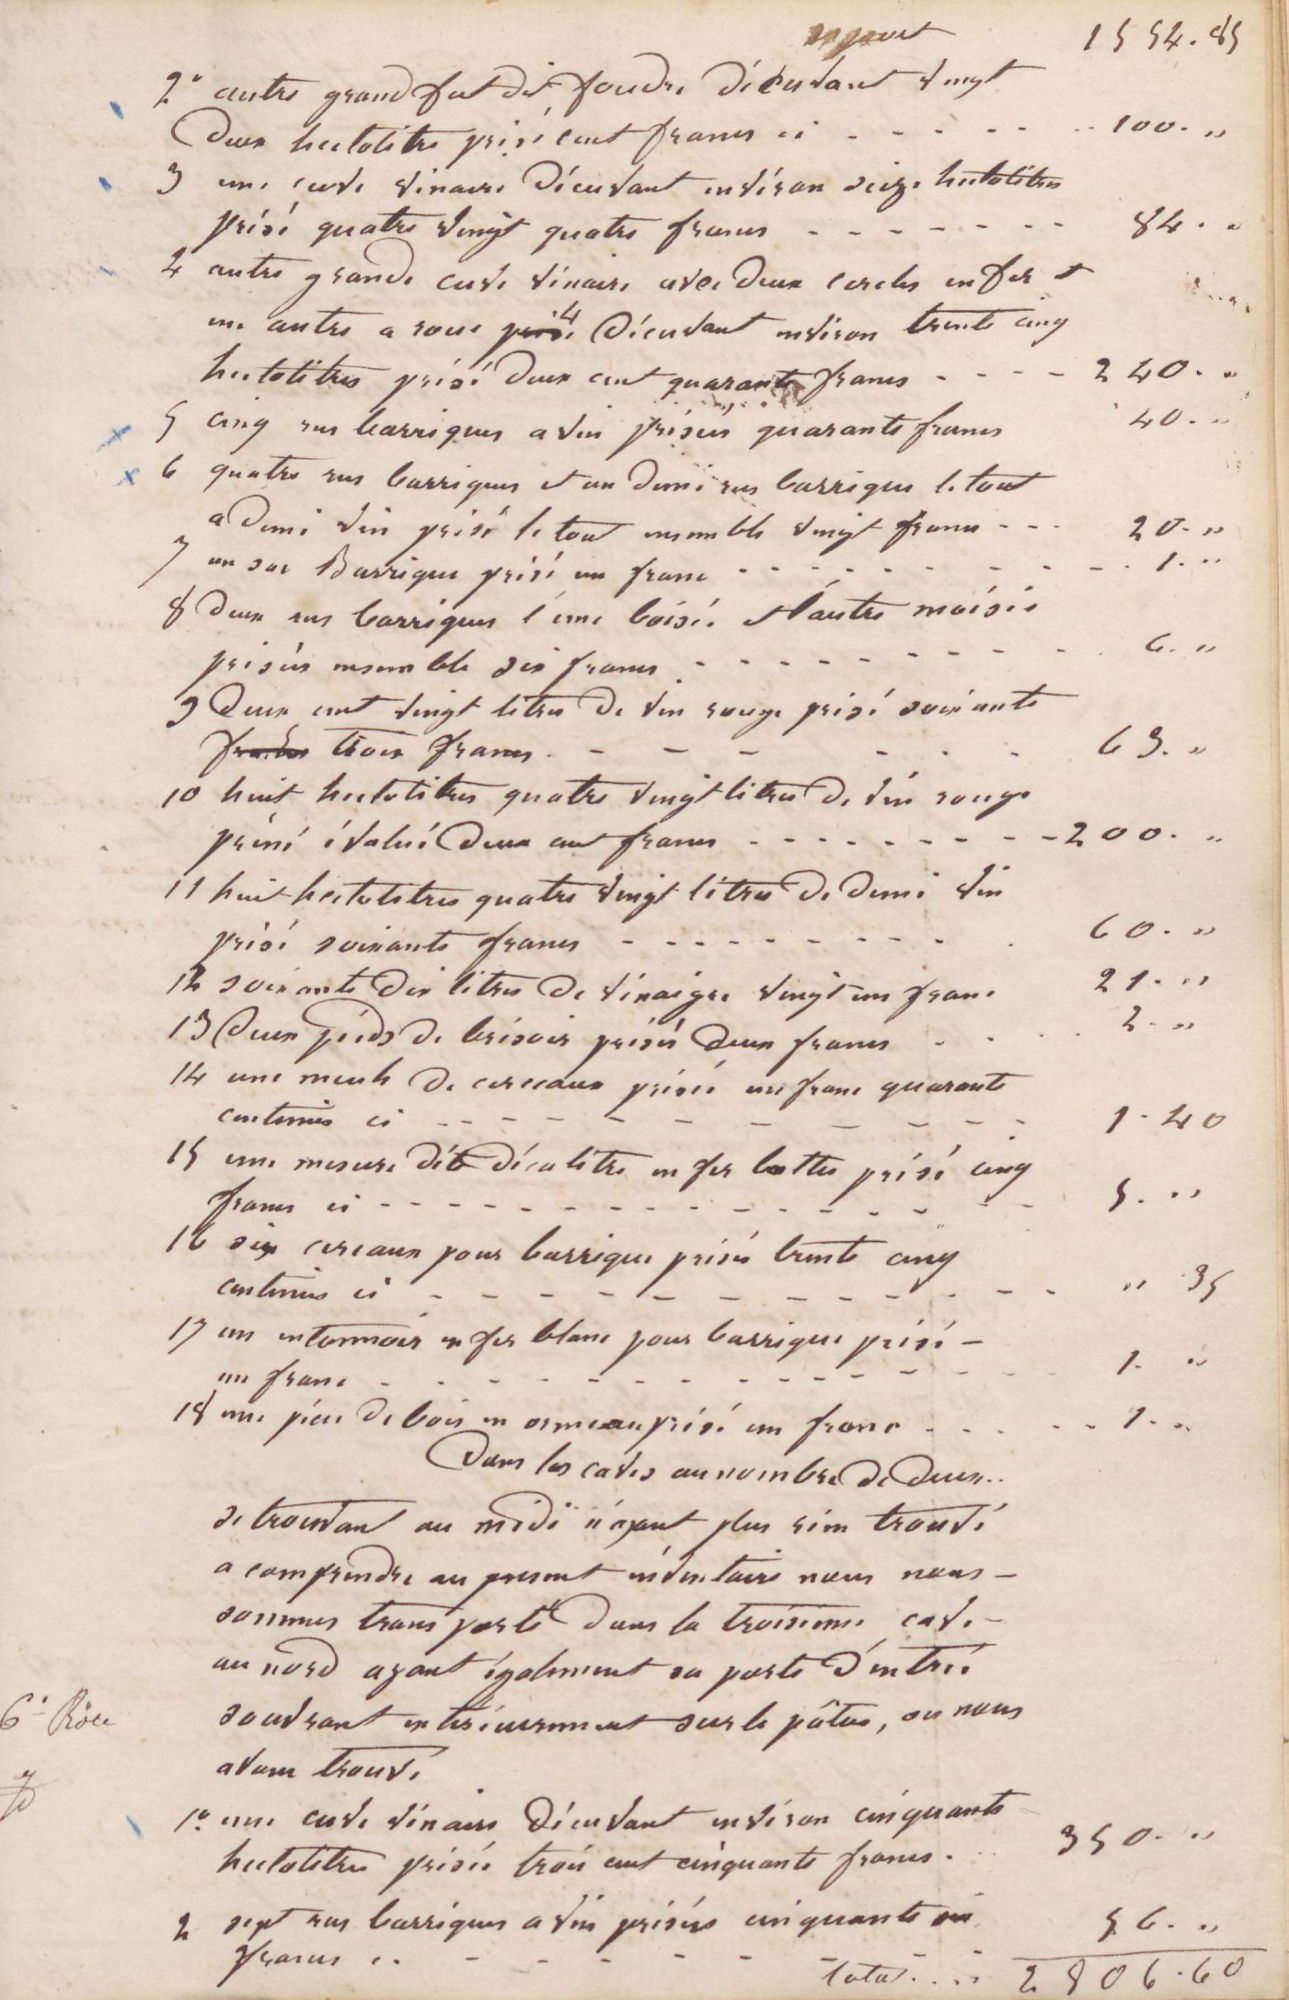 report 1554.85
2° autre grand fut dit foudre décuvant vingt
deux hectolitre prisé cent francs ci - - - - - 100. "
3 une cuve vinaire décuvant environ seize hectolitres
prisé quatre vingt quatre francs - - - - - - - 84. "
4 autre grande cuve vinaire avec deux cercles en fer et
une autre a roue prisé 4 décuvant environ trente cinq
hectolitres prisé deux cent quarante francs - - - - 240. "
5 cinq sus barriques a vin prisées quarante francs 40. "
6 quatre sus barriques et un demi sus barrique le tout
a demi vin prisé le tout ensemble vingt francs - - - 20. "
7 un sus Barrique prisé un franc - - - - - - - - - 1. "
8 deux sus barriques l'une boisée et l'autre moisie
prisées ensemble six francs - - - - - - - - - 6. "
9 deux cent vingt litres de vin rouge prisé soixante
francs trois francs. - - - - - - 63. "
10 huit hectolitres quatre vingt litres de vin rouge
prisé évalué deux cent francs - - - - - - - - - 200. "
11 huit hectolitres quatre vingt litres de demi vin
prisé soixante francs - - - - - - - - - - 60. "
12 soixante dix litres de vinaigre vingt un franc 21. "
13 deux pieds de brisoir prisés deux francs - - - 2. "
14 une meule de cerceaux prisée un franc quarante
centimes ci - - - - - - - - - - - 1. 40
15 une mesure dite décalitre en fer battu prisé cinq
francs ci - - - - - - - - - - - - - - - 5. "
16 six cerceaux pour barrique prisés trente cinq
centimes ci - - - - - - - - - - - - " 35
17 un entonnoir en fer blanc pour barrique prisé -
un franc - - - - - - - - - - - - - - 1. "
18 une pièce de bois en ormeau prisé un franc - - - - - 1. "
Dans les caves au nombre de deux..
se trouvant au midi n'ayant plus rien trouvé
a comprendre au present inventaire nous nous -
sommes transporté dans la troisième cave -
au nord ayant également sa porte d'entrée
s'ouvrant intérieurement sur le pâtus, ou nous
6e Rôle
avons trouvé
1° une cuve vinaire décuvant environ cinquante
hectolitres prisée trois cent cinquante francs. 350. "
2 sept sus barriques a vin prisées cinquante six
francs ci. - - - - - - - 56. "
total.... 2806.60